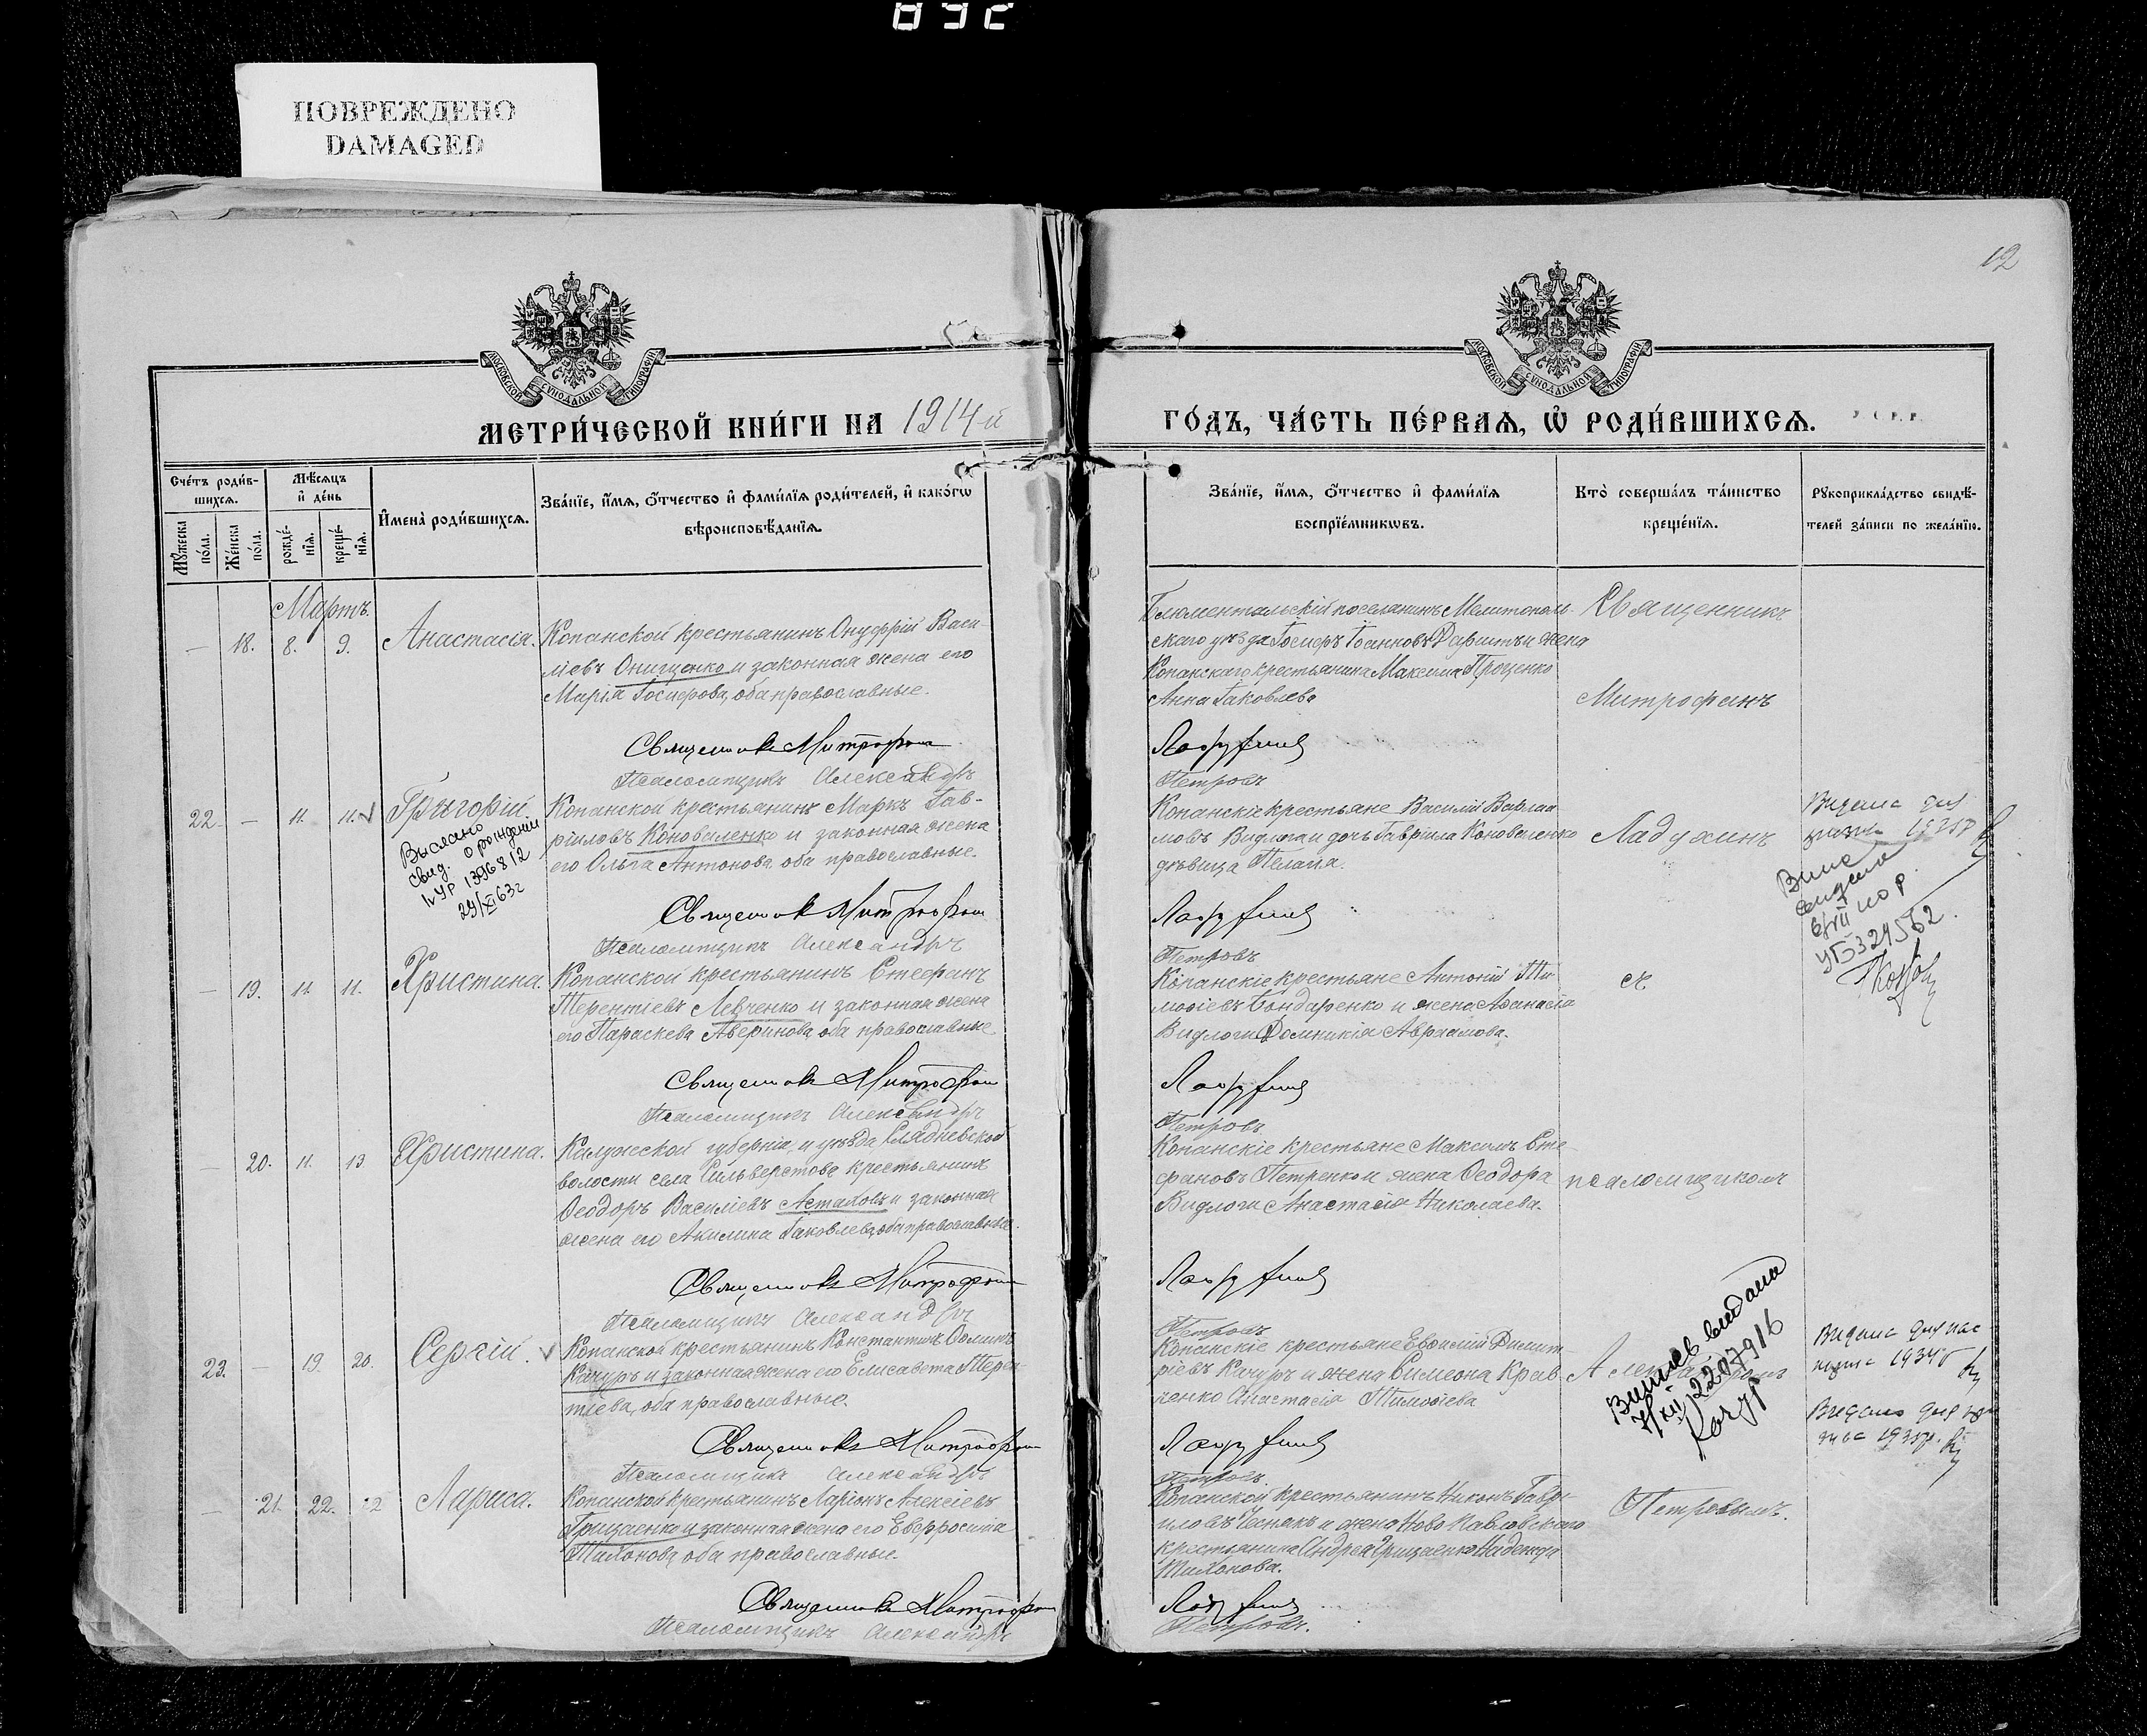 ПОВРЕЖДЕНО
DAMAGED
12
МОСКОВСКОЙ СѴНОДАЛЬНОЙ ТИПОГРАФІИ
МОСКОВСКОЙ СѴНОДАЛЬНОЙ ТИПОГРАФІИ
МЕТРИ́ЧЕСКОЙ КНИ́ГИ НА 1914й
ГО́ДЪ, ЧА́СТЬ ПЕ́РВАЯ, Ѡ҆ РОДИ́ВШИХСЯ.
Сче́тъ роди́в-
шихся.
Мѣ́сяцъ
и҆ де́нь
Мꙋ́жеска
по́ла.
Же́нска
по́ла.
рожде́-
нїя.
креще́-
нїя.
И҆мена̀ роди́вшихся.
Зва́нїе, и҆́мя, ѻ҆́тчество и҆ фами́лїя роди́телей, и҆ како́гѡ
вѣроисповѣ́данїя.
Зва́нїе, и҆́мя, ѻ҆́тчество и҆ фами́лїя
воспрїе́мникѡвъ.
Кто̀ соверша́лъ та́инство
креще́нїя.
Рꙋкоприкла́дство свидѣ́-
телей за́писи по жела́нїю.
Мартъ.
— 18. 8. 9. Анастасія.
Копанской крестьянинъ Онуфрій Васи-
ліевъ Онищенко и законная жена его
Марія Іосифова, оба православные.
Священникъ Митрофанъ
Псаломщикъ Александръ
Блюментальскій поселянинъ Мелитополь-
скаго уѣзда Іосифъ Іоанновъ и жена
Копанскаго крестьянина Максима Проценко
Анна Іаковлева
Ладухинъ
Петровъ
Священникъ
Митрофанъ
22. — 11. 11. Григорій
Выслано
свид. о рождении
IVУР 1396812
29/XI 63 г
Копанской крестьянинъ Маркъ Гав-
ріиловъ Коноваленко и законная жена
его Ольга Антонова оба православные.
Священникъ Митрофанъ
Псаломщикъ Александръ
Копанскіе крестьяне Василій Варлаа-
мовъ Видлога и дочь Гавріила Коноваленко
дѣвица Пелагія.
Ладухинъ
Петровъ
Ладухинъ
— 19. 11. 11. Христина.
Копанской крестьянинъ Стефанъ
Терентіевъ Левченко и законная жена
его Параскева Аверкіова, оба православные
Священникъ Митрофанъ
Псаломщикъ Александръ
Копанскіе крестьяне Антоній Ти-
моѳіевъ Бондаренко и жена Аѳанасія
Видлоги Домникія Авраамова.
Ладухинъ
Петровъ
съ
УБ 324562
— 20. 11. 13. Христина.
Калужской губерніи, и уѣзда
волости села Сильверстова крестьянинъ
Ѳеодоръ Василіевъ Астаховъ и законная
жена его Акилина Іаковлева, оба православные.
Священникъ Митрофанъ
Псаломщикъ Александръ
Копанскіе крестьяне Максимъ Сте-
фановъ Петренко и жена Ѳеодора
Видлоги Анастасія Николаева.
Ладухинъ
Петровъ
псаломщикомъ
23. — 19. 20. Сергій.
Копанской крестьянинъ Константинъ Ѳоминъ
Качуръ и законная жена его Елисавета Терен-
тіева, оба православные.
Священникъ Митрофанъ
Псаломщикъ Александръ
Копанскіе крестьяне Евѳимій Димит-
ріевъ Качуръ и жена Симеона Крав-
ченко Анастасія Тимоѳіева
Ладухинъ
Петровъ
Александромъ
Витяг видана
7/XII 2207916
Качур
Видано для пас-
1934 г
Видано для
1931р.
— 21. 22. Лариса.
Копанской крестьянинъ Ларіонъ Алексіевъ
Грицаенко и законная жена его Евфросинія
Тихонова, оба православные.
Священникъ Митрофанъ
Псаломщикъ Александръ
Копанской крестьянинъ Никонъ Гаврі-
иловъ Чеснакъ и жена Ново-Павловскаго
крестьянина Андрея Грицаенко Надежда
Тихонова.
Ладухинъ
Петровъ.
Петровымъ.